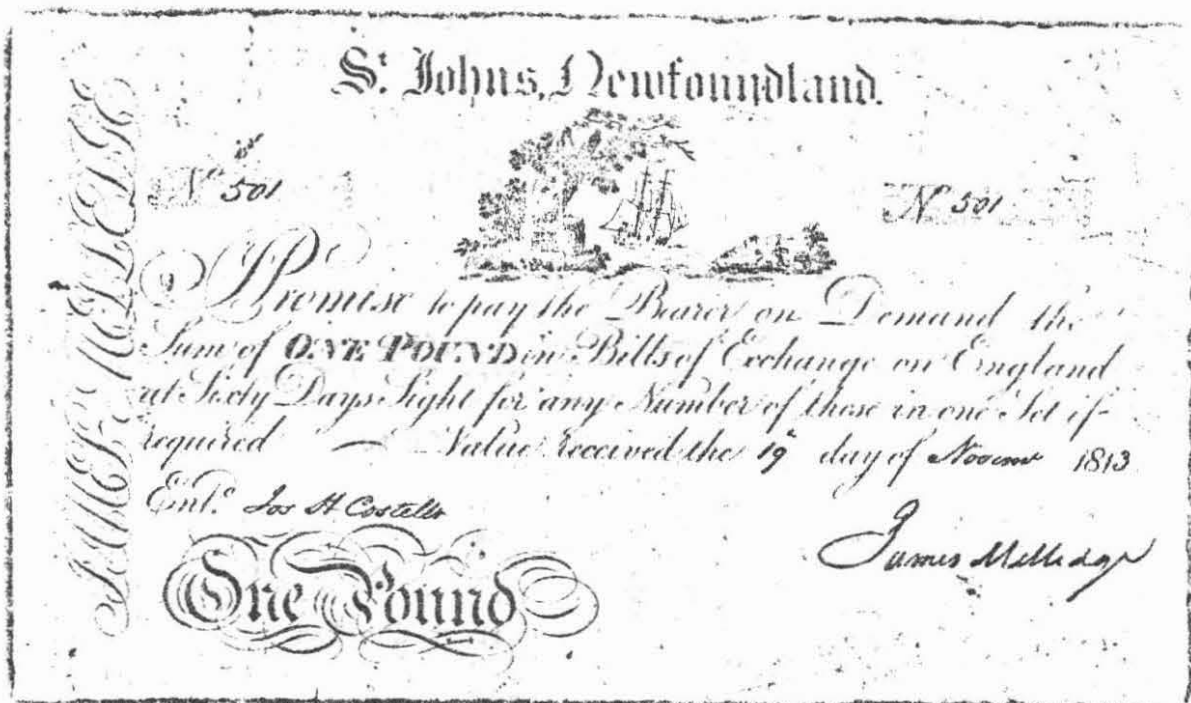 St. Johns, Newfoundland.
No 501
No 501
I Promise to pay the Bearer on Demand the
Sum of ONE POUND in Bills of Exchange on England
at Sixty Days Sight for any Number of these in one Set if
required — Value received the 19th day of Novemr 1813
Entd. Jos H Costello
James Milledge
One Pound
JAMES MILLEDGE